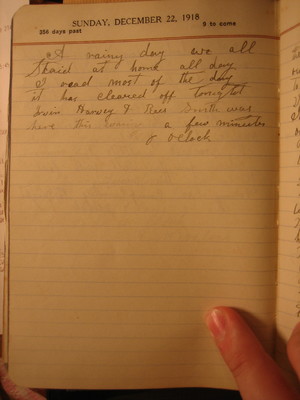 SUNDAY, DECEMBER 22, 1918
356 days past 9 to come
A rainy day we all
staid at home all day
I read most of the day
it has cleared off tonight
Irvin Harvey & Smith was
here this evening a few minutes
8 OClock